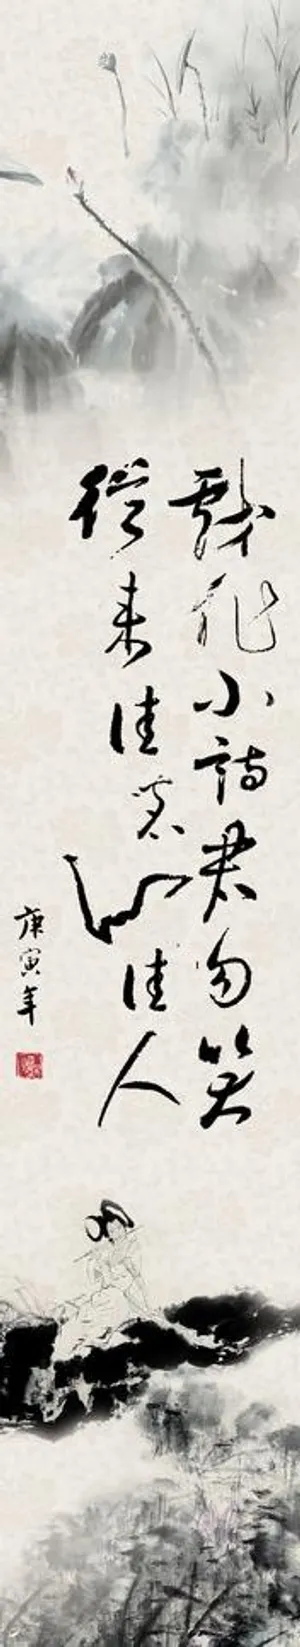 戲作小詩君勿笑
從来佳茗似佳人
庚寅年